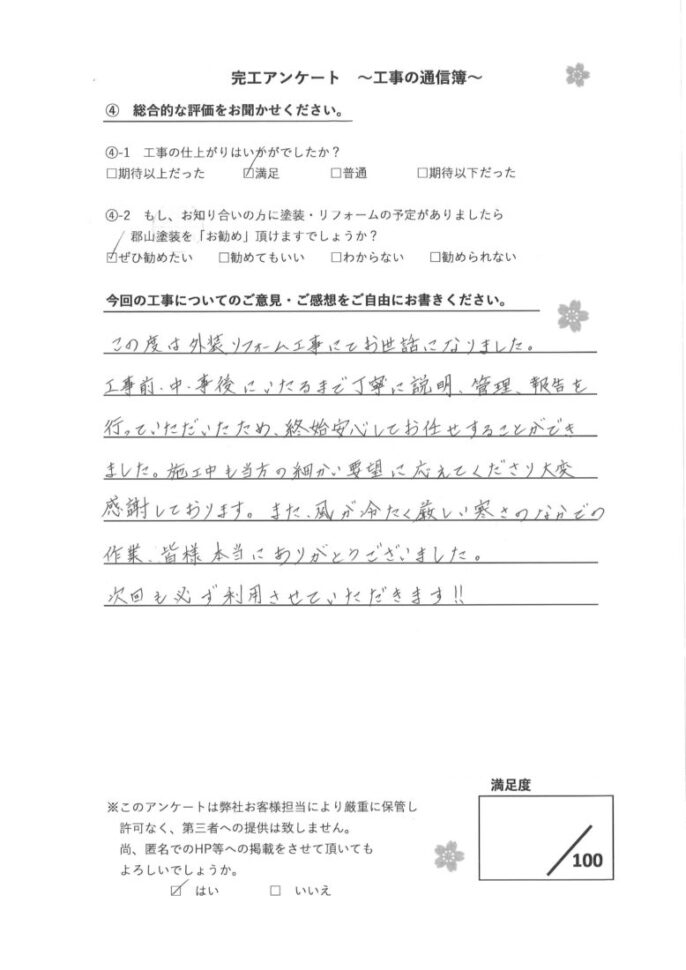 完工アンケート　～工事の通信簿～
④　総合的な評価をお聞かせください。
④-1　工事の仕上がりはいかがでしたか？
□期待以上だった　☑満足　□普通　□期待以下だった
④-2　もし、お知り合いの方に塗装・リフォームの予定がありましたら
郡山塗装を「お勧め」頂けますでしょうか？
☑ぜひ勧めたい　□勧めてもいい　□わからない　□勧められない
今回の工事についてのご意見・ご感想をご自由にお書きください。
この度は外装リフォーム工事にてお世話になりました。
工事前・中・事後にいたるまで丁寧に説明、管理、報告を
行っていただいたため、終始安心してお任せすることができ
ました。施工中も当方の細かい要望に応えてくださり大変
感謝しております。また、風が冷たく厳しい寒さのなかでの
作業、皆様本当にありがとうございました。
次回も必ず利用させていただきます!!
満足度
／100
※このアンケートは弊社お客様担当により厳重に保管し
許可なく、第三者への提供は致しません。
尚、匿名でのHP等への掲載をさせて頂いても
よろしいでしょうか。
☑　はい　□　いいえ